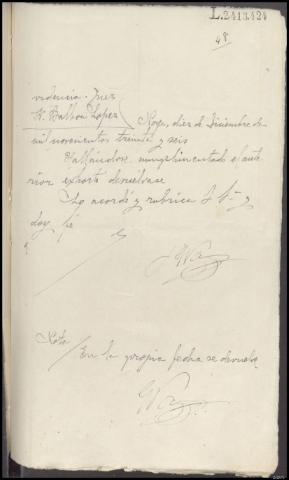 L.2413.424
48
videncia. Juez
Sr. Balboa López
Noya, diez de Diciembre de
mil novecientos treinta y seis
Hallándose cumplimentado el ante
rior exhorto devuélvase
Lo acordó y rubrica S Sª y
doy fé
Nota
En la propia fecha se devuelve